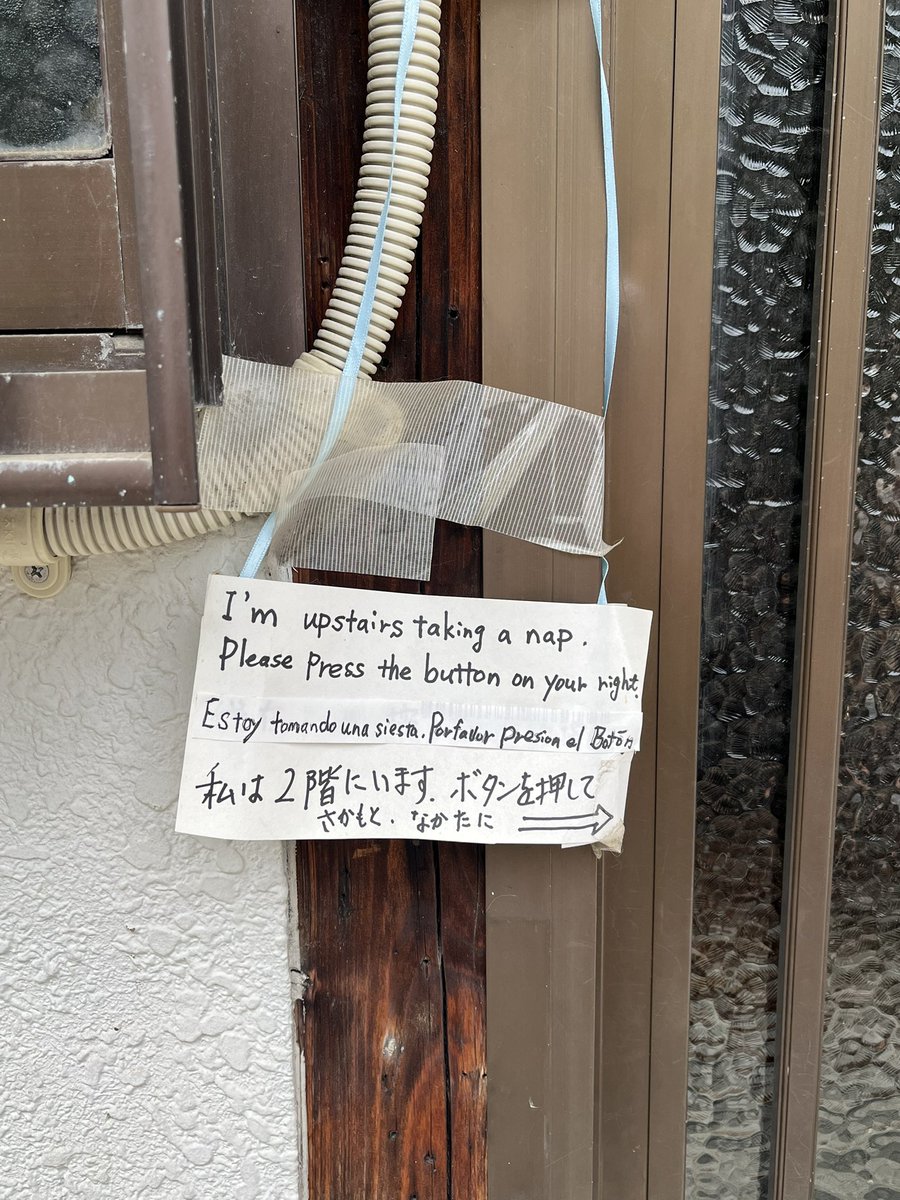 I'm upstairs taking a nap.
Please Press the button on your right.
Estoy tomando una siesta. Porfavor Presion el Botón
私は2階にいます. ボタンを押して
さかもと. なかたに